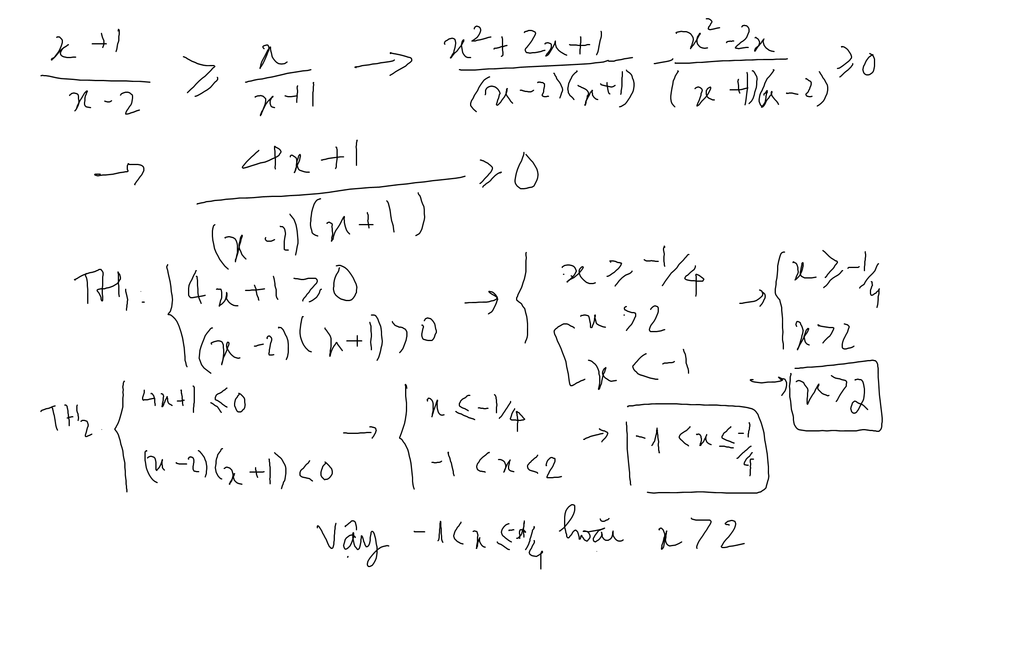 (x+1)/(x-2) ≥ x/(x+1) → (x²+2x+1)/((x-2)(x+1)) - (x²-2x)/((x+1)(x-2)) ≥ 0
→ (4x+1)/((x-2)(x+1)) ≥ 0
TH1: { 4x+1 ≥ 0 ; (x-2)(x+1) > 0 → { x ≥ -1/4 ; [ x > 2 ; x < -1 → { x ≥ -1/4 ; x > 2 → x > 2
TH2. { 4x+1 ≤ 0 ; (x-2)(x+1) < 0 → { x ≤ -1/4 ; -1 < x < 2 → -1 < x ≤ -1/4
Vậy -1 < x ≤ -1/4 hoăc x > 2